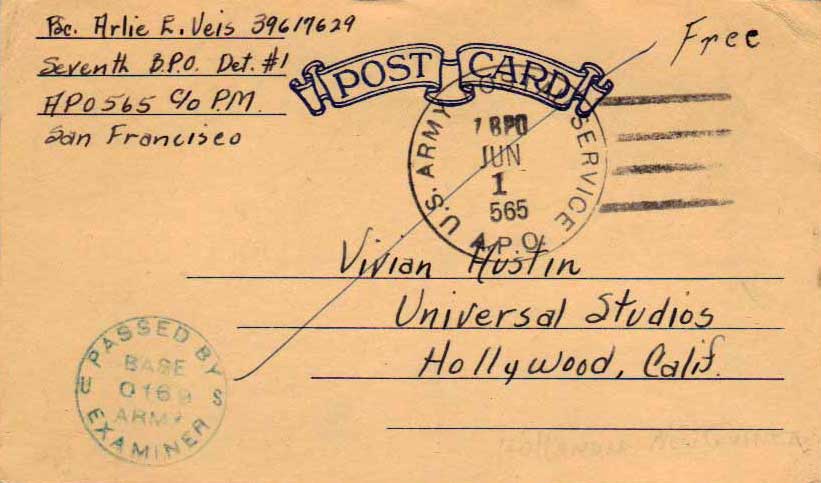 Pvc. Arlie E. Veis 39617629
Seventh B.P.O. Det. #1
APO 565 C/o P.M.
San Francisco
Free
POST CARD
U.S. ARMY SERVICE
BPO
JUN
1
565
A.P.O.
Vivian Austin
Universal Studios
Hollywood, Calif.
PASSED BY
BASE
0169
ARMY
U S
EXAMINER